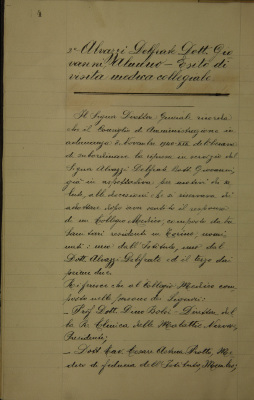 3º Alvazzi Delfrate Dott. Gio
vanni, Alunno - Esito di
visita medica collegiale.
Il Signor Direttore Generale ricorda
che il Consiglio di Amministrazione in
adunanza 6 Novembre
di subordinare la ripresa in servizio del
Signor Alvazzi Delfrate Dott. Giovanni,
già in aspettativa per motivi di sa
lute, alle decisioni che si riserva di
adottare dopo aver sentito il parere
di un Collegio Medico, composto da tre
Sanitari residenti in Torino, nomi
nati: uno dall'Istituto, uno dal
Dott. Alvazzi Delfrate ed il terzo dai
primi due.
Riferisce che il Collegio Medico com
posto nelle persone dei Signori:
- Prof. Dott. Dino Bolsi - Direttore del
la R. Clinica delle Malattie Nervose,
Presidente;
- Dott. Cav. Cesare Motta, Me
dico di fiducia dell'Istituto, Membro;